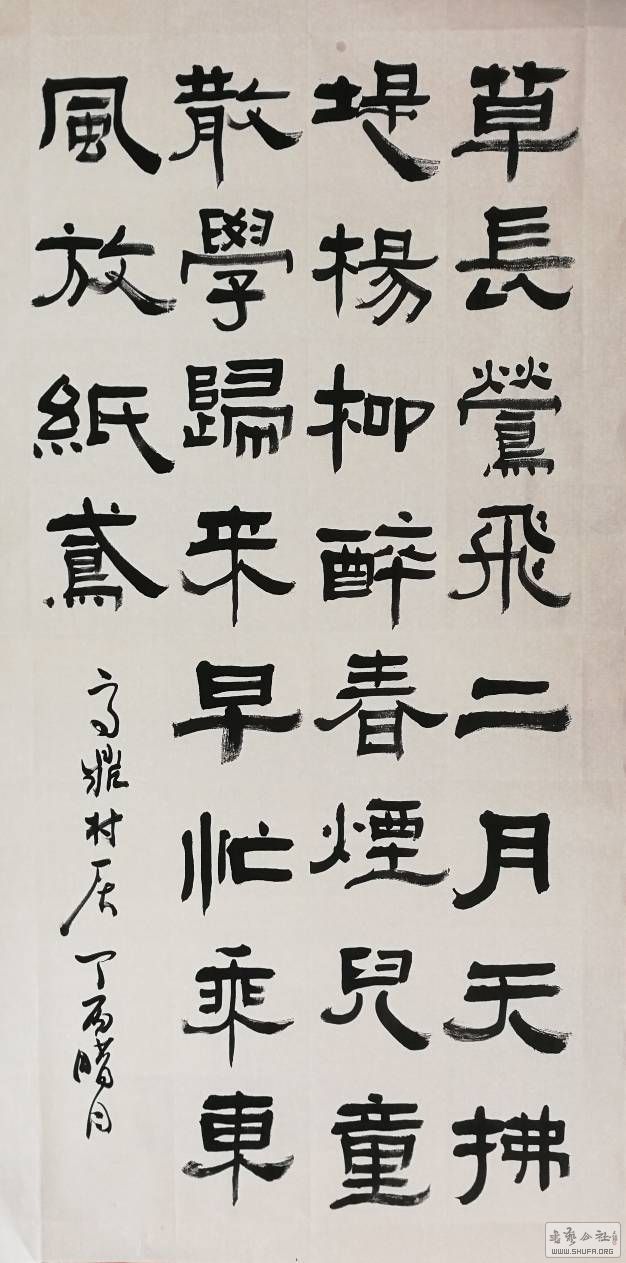 草長鶯飛二月天拂
堤楊柳醉春煙兒童
散學歸来早忙乘東
風放紙鳶
高鼎村居 丁酉腊月
书艺公社
WWW.SHUFA.ORG